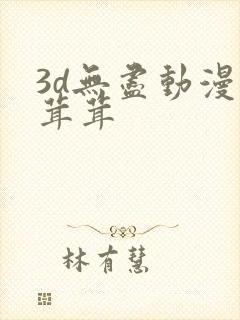 3d無盡動漫
茸茸
林有慧